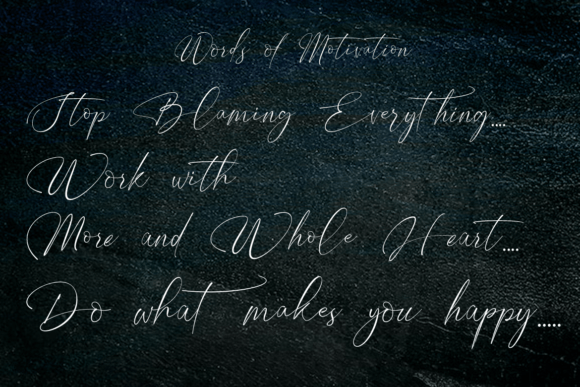 Words of Motivation
Stop Blaming Everything....
Work with
More and Whole Heart....
Do what makes you happy.....